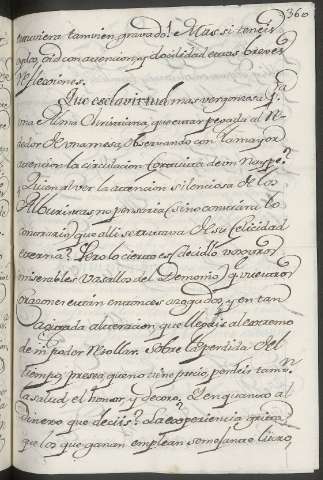 360
tuviera tambien gravado! Mas si teneis
oid con atencion, y docilidad estas breves
reflecciones.
Que esclavitud mas vergonzosa p.ª
una Alma Christiana, que estar pegada al
dedor de una mesa, observando con la mayor
atencion la circulacion de un Naype?
Quien al ver la atencion silenciosa de los
no pensaria (sino constara lo
contrario) que alli se tratava de su felicidad
eterna? Pero lo cierto es (decidlo vosotros
miserables vasallos del Demonio) q. vuestros
corazones están entonces aogados, y en tan
agitada alteracion, que llegais al extremo
de no poder resollar. Sobre la perdida del
tiempo, presea que no tiene precio, perdeis tamn.
la salud, el honor, y decoro. Y en quanto al
dinero que decis? La experiencia grita
que los que ganan emplean semejante lucro,